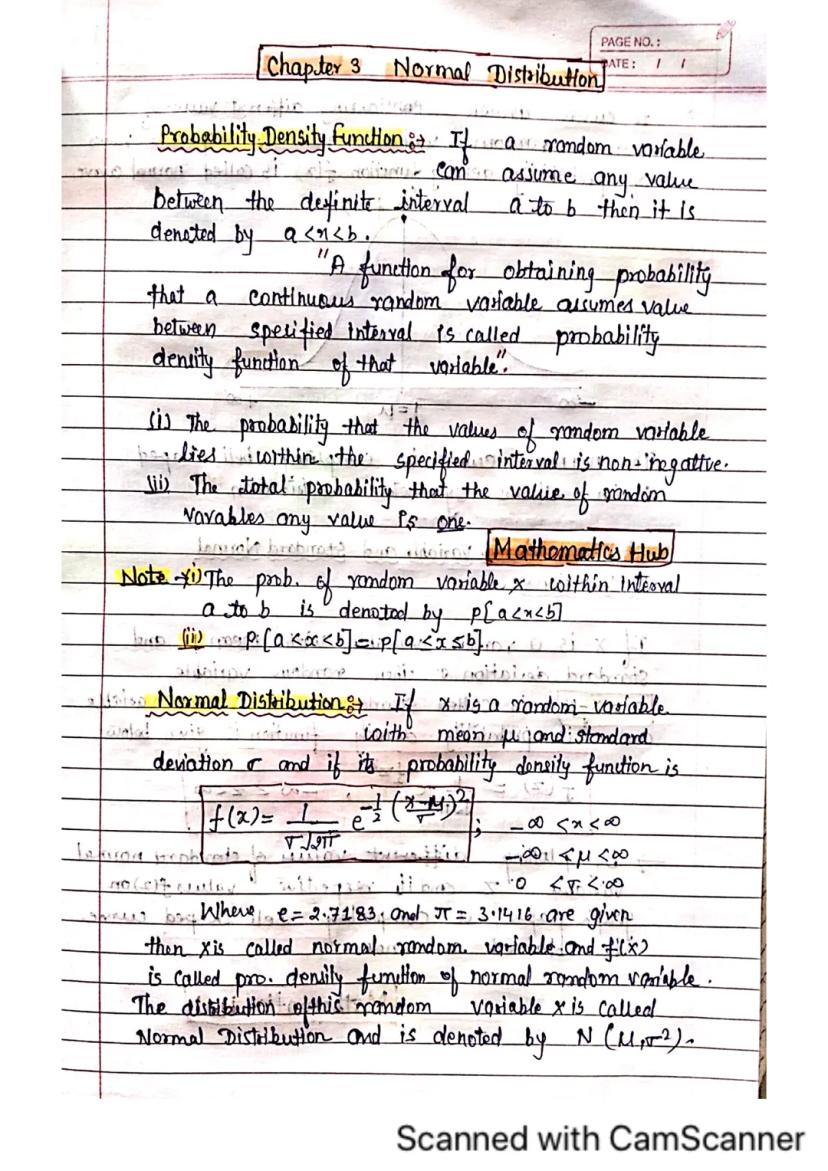 PAGE NO.:
DATE: / /
Chapter 3 Normal Distribution
Probability Density Function :→ If a random variable
can assume any value
between the definite interval a to b then it is
denoted by a<x<b.
"A function for obtaining probability
that a continuous random variable assumes value
between specified interval is called probability
density function of that variable".
(i) The probability that the values of random variable
lies within the specified interval is non-negative.
(ii) The total probability that the value of random
varables any value is one.
Mathematics Hub
Note → (i) The prob. of random variable x within interval
a to b is denoted by P[a<x<b]
(ii) P[a<x<b] = P[a<x≤b].
Normal Distribution :→ If x is a random variable
with mean μ and standard
deviation σ and if its probability density function is
f(x) = 1/(σ√2π) e^{-1/2 ((x-μ)/σ)^2} ; -∞ <x<∞
-∞ <μ <∞
0 <σ <∞
Where, e = 2.7183 and π = 3.1416 are given
then x is called normal random variable and f(x)
is called pro. density function of normal random variable.
The distribution of this random variable x is called
Normal Distribution and is denoted by N (μ,σ²).
Scanned with CamScanner